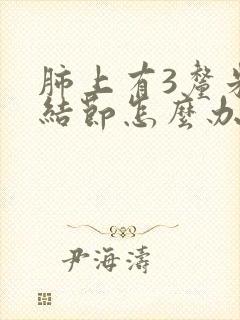 肺上有3釐米
結節怎麼办
尹海濤